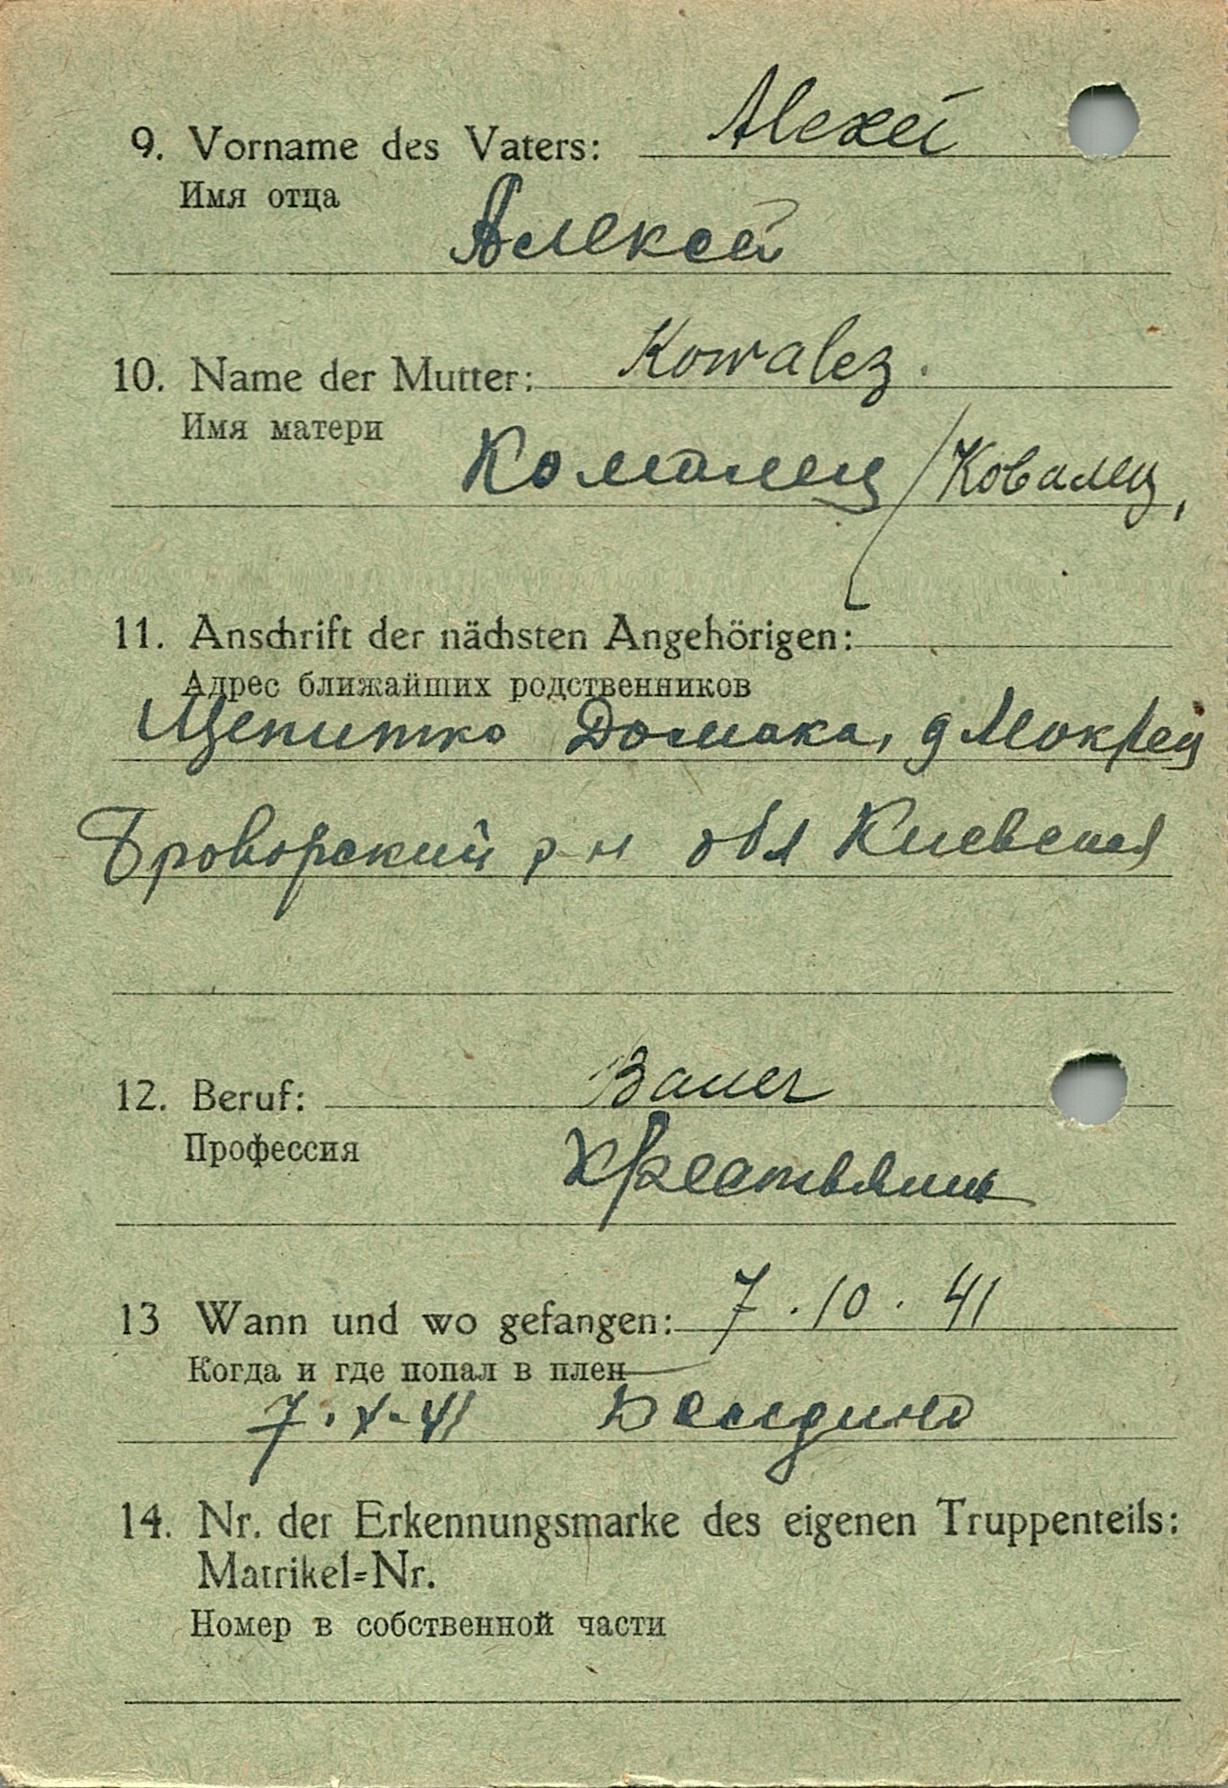 9. Vorname des Vaters: Alexei
Имя отца
Алексей
10. Name der Mutter: Kowalez.
Имя матери
/Ковалец,
11. Anschrift der nächsten Angehörigen:
Адрес ближайших родственников
Щепитко Домака, д Мокрец
Броворский р-н обл Киевская
12. Beruf: Bauer
Профессия
Крестьянин
13 Wann und wo gefangen: 7.10.41
Когда и где попал в плен
7.X.41
14. Nr. der Erkennungsmarke des eigenen Truppenteils:
Matrikel=Nr.
Номер в собственной части